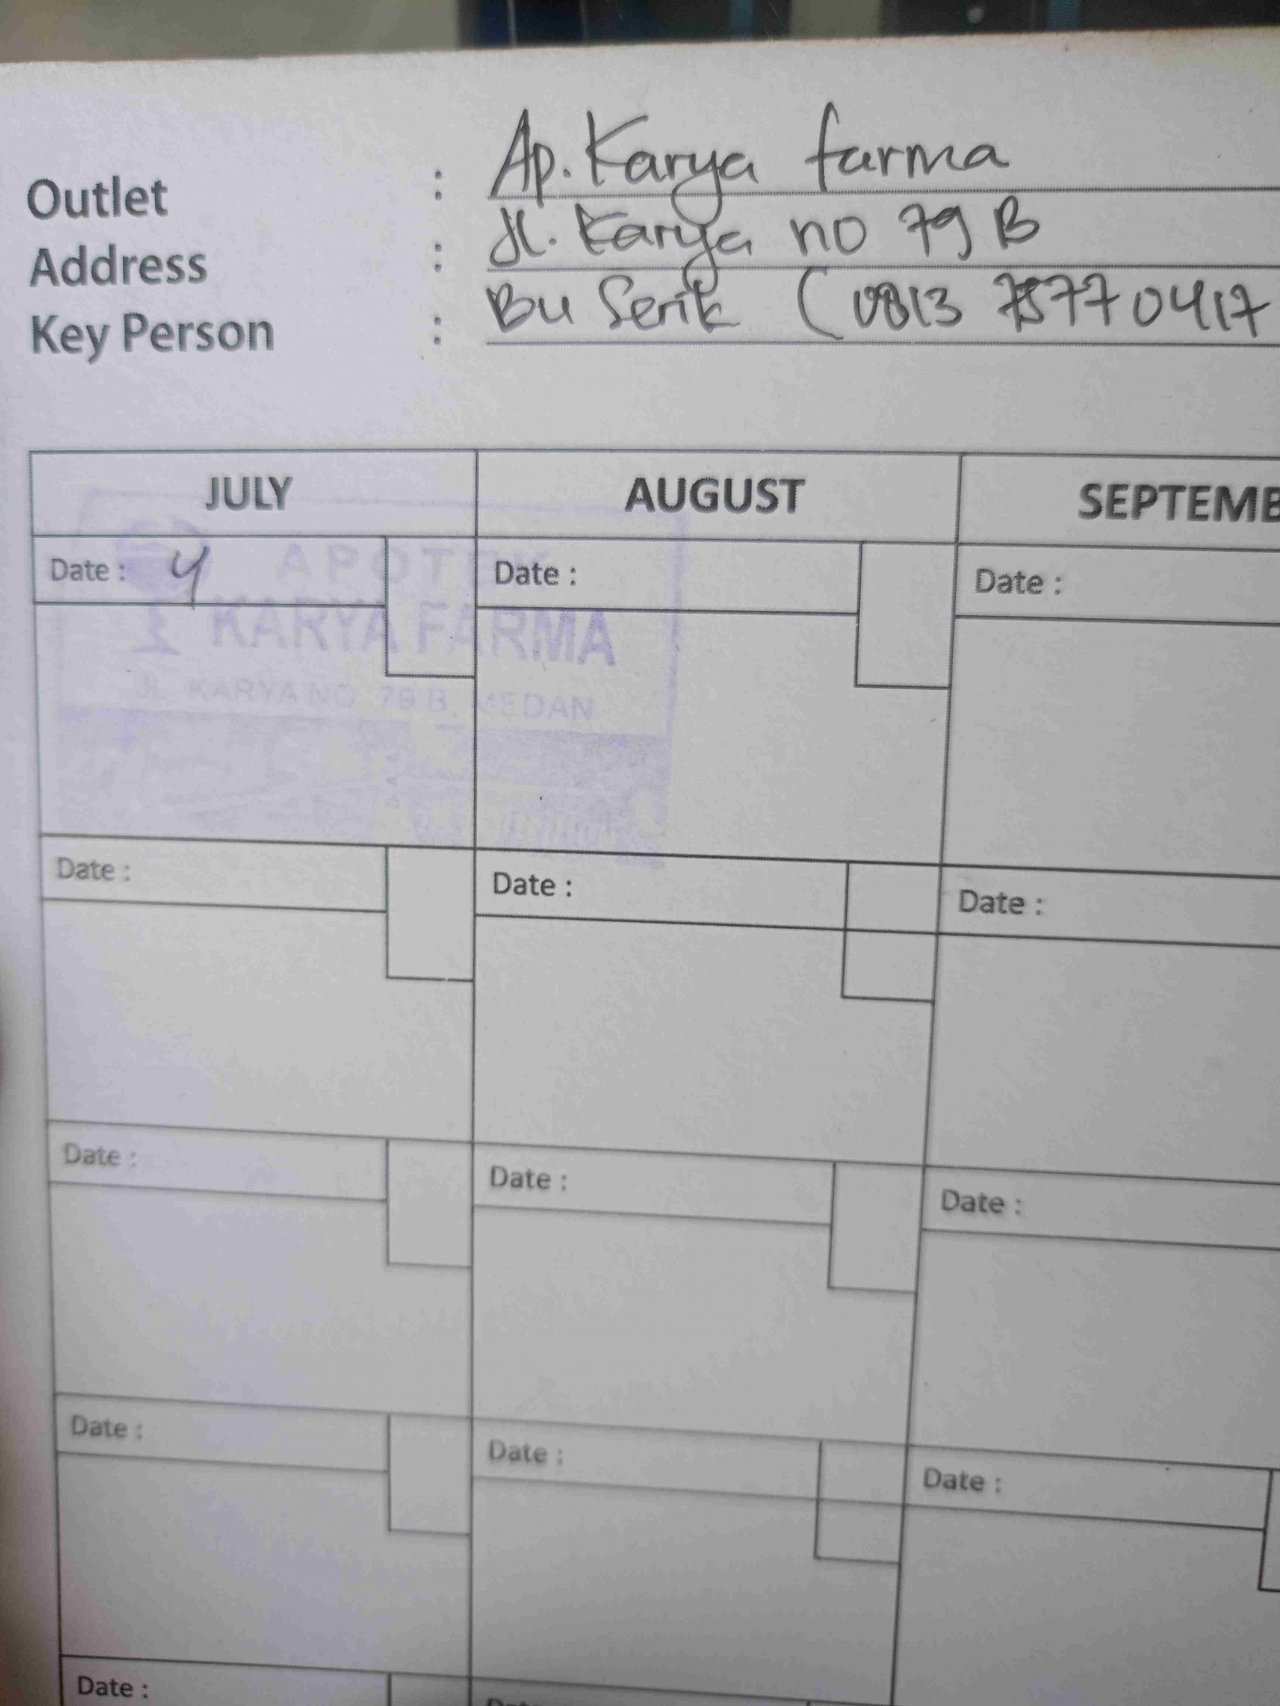 Outlet : Ap. Karya farma
Address : Jl. Karya no 79 B
Key Person : Bu Serik (0813 7577 0417
JULY AUGUST SEPTEMB
Date : 4 Date : Date :
APOTEK
KARYA FARMA
JL. KARYA NO. 79 B MEDAN
Date : Date : Date :
Date : Date : Date :
Date : Date : Date :
Date : Date :